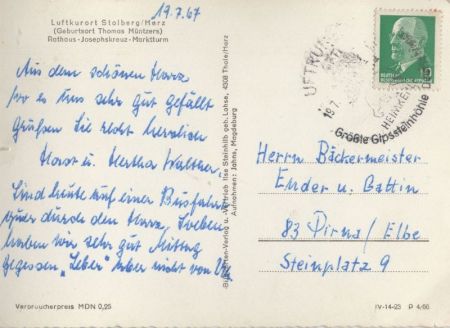 19.7.67
Luftkurort Stolberg/Harz
(Geburtsort Thomas Müntzers)
Rathaus - Josephskreuz - Marktturm
Aus dem schönen Harz
wo es uns sehr gut gefällt
Grüßen Sie recht herzlich
Horst u. Hertha Walther.
Sind heute auf einer Busfahrt
quer durch den Harz, soeben
haben wir sehr gut Mittag
gegessen „Leber" aber nicht von
Verbraucherpreis MDN 0,25
Vertrieb Ilse Steinhilb geb. Lohse, 4308 Thale/Harz
Aufnahmen: Jahns, Magdeburg
LUFTKUR
19.7.
HEIMKEHLE
Größte Gipssteinhöhle D
15
Herrn Bäckermeister
Ender u. Gattin
83 Pirna / Elbe
Steinplatz 9
IV-14-23 P 4/66